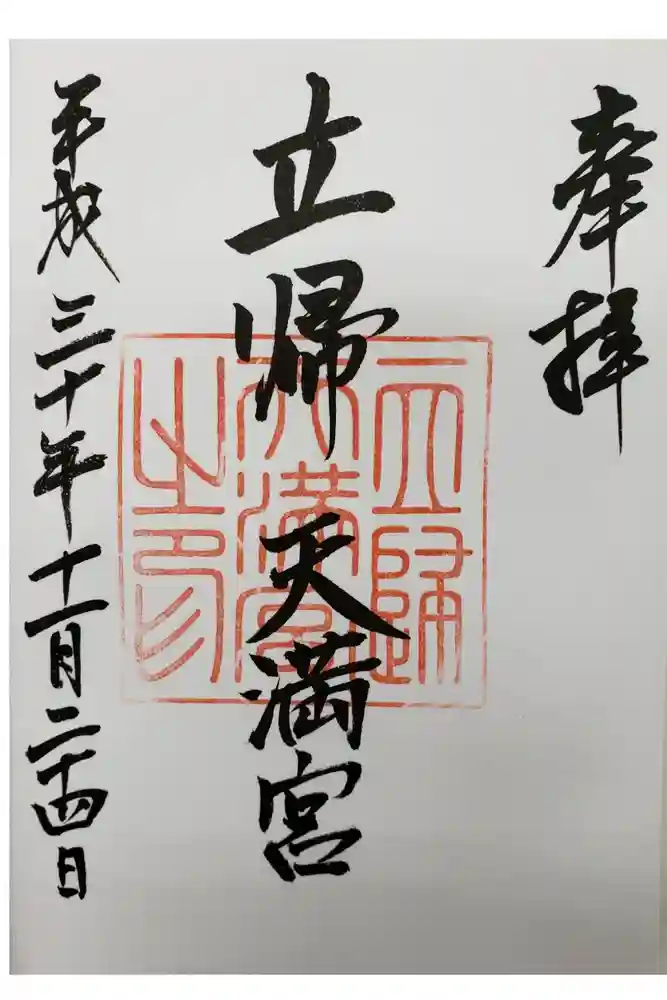 奉拝
立帰天満宮
立歸天満宮之印
平成三十年十一月二十四日